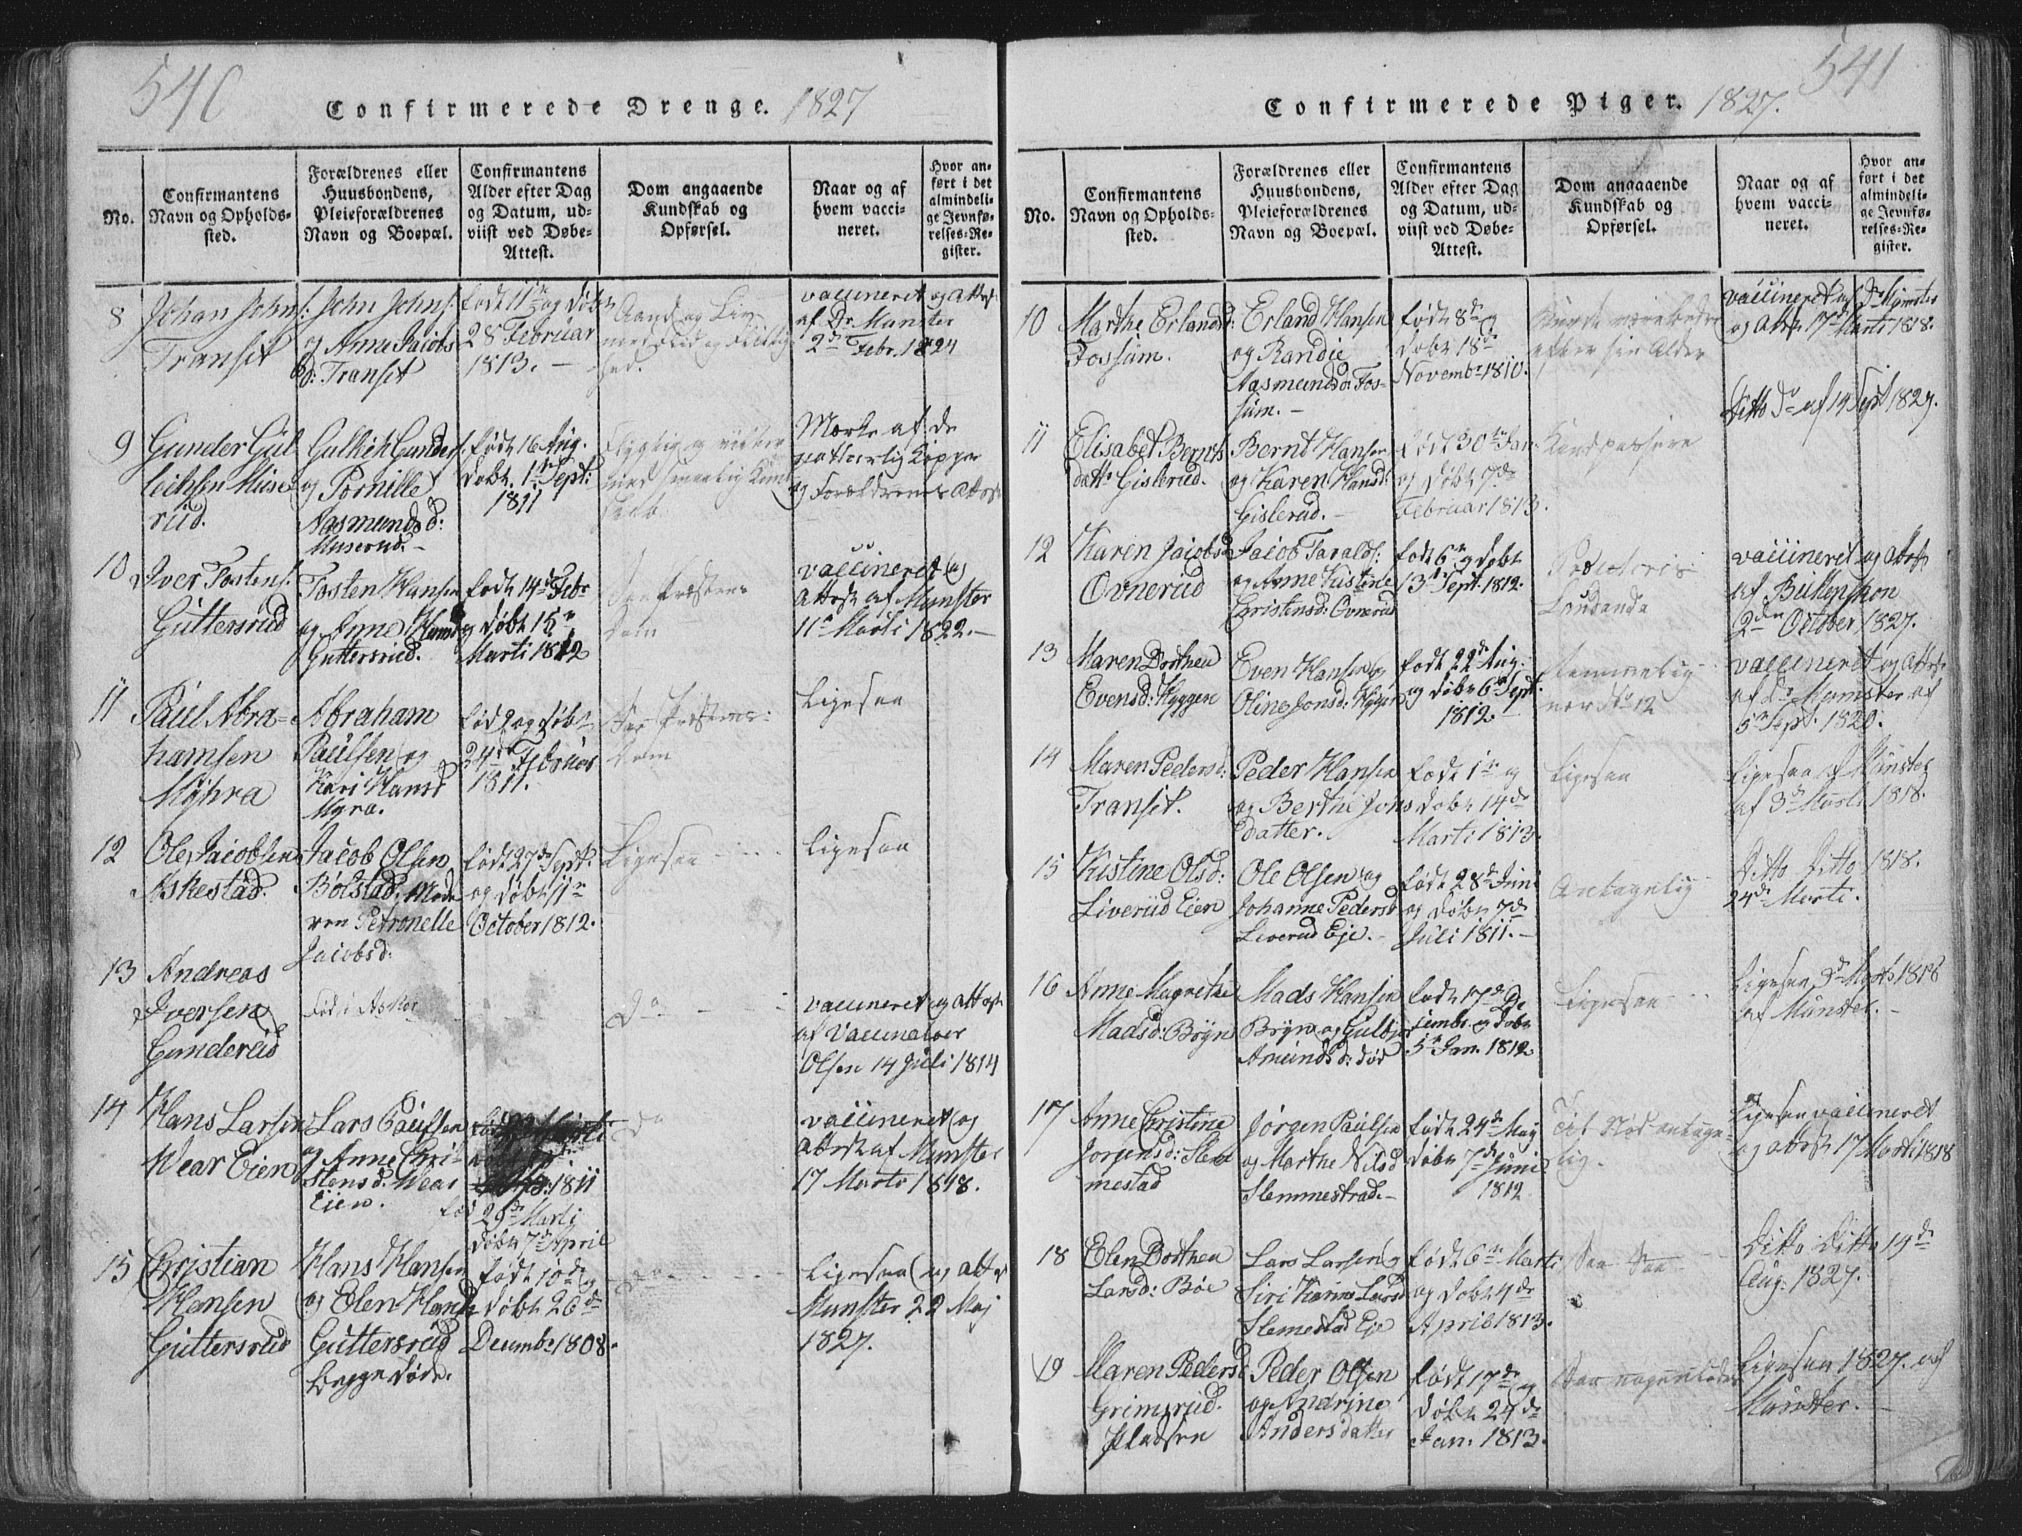 540
Confirmerede Drenge. 1827
No.
Confirmantens
Navn og Opholds-
sted.
Forældrenes eller
Huusbondens,
Pleieforældrenes
Navn og Boepæl.
Confirmantens
Alder efter Dag
og Datum, ud-
viist ved Døbe-
Attest.
Dom angaaende
Kundskab og
Opførsel.
Naar og af
hvem vacci-
neret.
Hvor an-
ført i det
almindeli-
ge Jevnfø-
relses-Re-
gister.
8
Johan Johns:
Transet
John Johns:
og Anne Jacobs
d: Transet
født 11te og døbt
28 Februar
1813. –
vaccineret og Attest
af Dr Munster
2den Febr. 1824
9
Gunder Gul
leichsen Muse
rud.
Gulleich Gunders:
og Pernille
Aasmundsd:
Muserud. –
født 16 Aug.
døbt 1ste Sept:
1811
Mærke af de
naturlig Kopper
og Forældrenes Attest
10
Iver Tostens:
Guttersrud
Tosten Hansen
og Anne Hansd
Guttersrud.
født 14de Febr
og døbt 15de
Marti 1812
vaccineret og
Attest af Munster
11te Marti 1822. –
11
Paul Abra-
hamsen
Myhra
Abraham
Paulsen og
Kari Hansd
Myra.
født og døbt
24de Februar
1811.
Ligesaa
12
Ole Jacobsen
Askestad.
Jacob Olsen
Bølstad, Mode
ren Petronelle
Jacobsd:
født 27de Sept.
og døbt 11te
October 1812.
Ligesaa
Ligesaa
13
Andreas
Iversen
Gunderud
Født i Asker
Do
vaccineret og Attest
af Vaccinateur
Olsen 14 Juli 1814
14
Hans Larsen
Wear Eien
Lars Paulsen
og Anne Chri-
stensd: Wear
Eien.
1811
født 29de Marti
døbt 7de April
do
vaccineret og
Attest af Munster
17 Marti 1818.
15
Christian
Hansen
Guttersrud
Hans Hansen
og Elen Hansd
Guttersrud
begge døde.
født 10de og
døbt 26de
Decembr 1808.
do
Ligesaa og Attest
Munster 22 Maj
1827.
541
Confirmerede Piger. 1827.
No.
Confirmantens
Navn og Opholds-
sted.
Forældrenes eller
Huusbondens,
Pleieforældrenes
Navn og Boepæl.
Confirmantens
Alder efter Dag
og Datum, ud-
viist ved Døbe-
Attest.
Dom angaaende
Kundskab og
Opførsel.
Naar og af
hvem vacci-
neret.
Hvor an-
ført i det
almindeli-
ge Jevnfø-
relses-Re-
gister.
10
Marthe Erlandsd:
Fossum.
Erland Hansen
og Randie
Aasmundsdr Fos-
sum. –
født 8de og
døbt 18de
Novembr 1810.
Burde være bedre
efter sin Alder
vaccineret af Dr Munster
og Attest 17de Marti 1818.
11
Elisabet Bernts
datter Gislerud.
Bernt Hansen
og Karen Hansd:
Gislerud. –
født 30te Jan
og døbt 7de
Februar 1813.
Kand passere
Ditto Do af 19 Sept 1827.
12
Karen Jacobsd
Ovnerud
Jacob Taralds:
og Anne Kistine
Christensd: Ovnerud
født 6te og døbt
13de Sept. 1812.
Laudanda
vaccineret og Attest
af Bukenshon
2den October 1827.
13
Maren Dorthea
Evensd: Hyggen
Even Hansen og
Oline Jonsd: Hyggen
født 22de Aug.
og døbt 6te Sept.
1812. –
vaccineret og Attest
af Dr Munster af
5te Sept. 1820.
14
Maren Pedersd:
Transet.
Peder Hansen
og Berthe Jons
datter.
født 1ste og
døbt 14de
Marti 1813
Ligesaa
Ligesaa af Munster
af 3de Marti 1818.
15
Kistine Olsd:
Liverud Eien
Ole Olsen og
Johanne Pedersd
Liverud Eje. –
født 28de Juni
og døbt 7de
Juli 1811. –
Antagelig
Ditto Ditto 1818.
24de Marti.
16
Anne Magrethe
Madsd: Bøyn
Mads Hansen
Bøyn og Gulbjør
Amundsd: død
født 17de De
cembr og døbt
5te Jan. 1812
Ligesaa
Ligesaa 3de Marti 1818
af Munster. –
17
Anne Christine
Jorgensd: Slem
mestad
Jørgen Paulsen
og Marthe Nilsd
Slemmestad. –
født 24de Maj
døbt 7de Juni
1812
Til Nød antage-
lig.
Ligesaa vaccineret
og attest 17 Marti 1818
18
Elen Dorthea
Larsd: Bøe
Lars Larsen og
Siri Karine Larsd
Slemestad Eje
født 6te Marti
og døbt 4de
April 1813.
Saa Saa
Ditto Ditto 19de
Aug. 1827.
19
Maren Pedersd
Grimsrud.
Pladsen
Peder Olsen
og Andrine
Andersdatter
født 17de og
døbt 24de
Jan. 1813.
Saa nogenledes
Ligesaa 1827. af
Munster. –